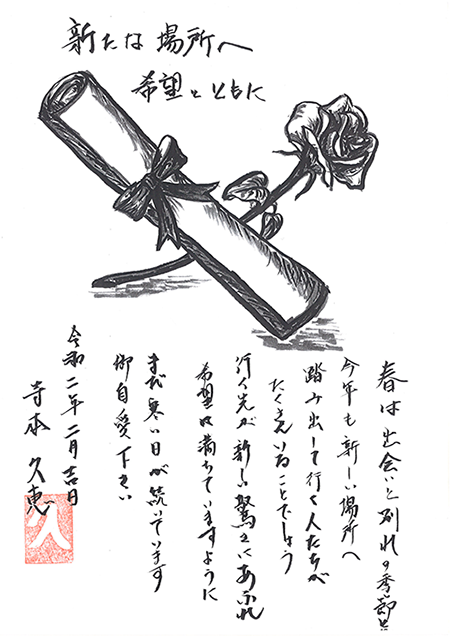 新たな場所へ
希望とともに
春は出会いと別れの季節と
今年も新しい場所へ
踏み出して行く人たちが
たくさんいることでしょう
行く先が新しい驚きにあふれ
希望に満ちていますように
まだ寒い日が続いています
御自愛下さい
令和二年二月吉日
寺本 久恵
久